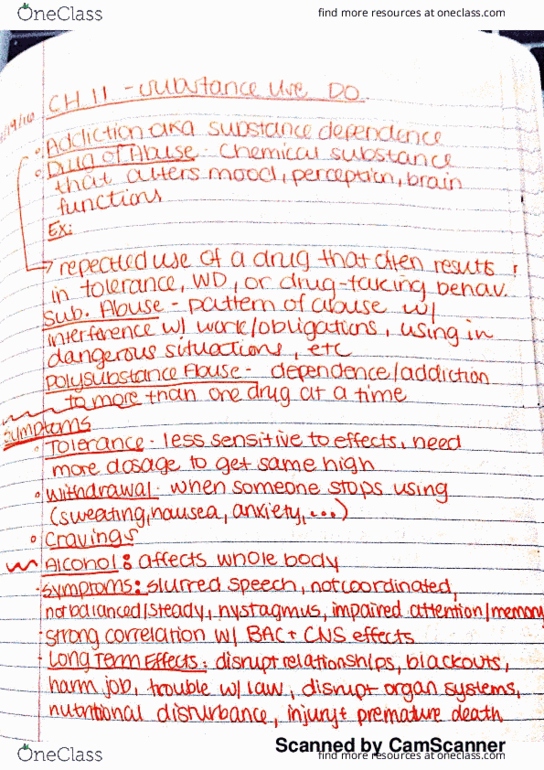 OneClass find more resources at oneclass.com
CH 11 - Substance Use DO
Addiction aka substance dependence
Drug of Abuse - chemical substance
that alters mood, perception, brain
functions
Ex:
repeated use of a drug that often results
in tolerance, WD, or drug-taking behav.
Sub. Abuse - pattern of abuse w/
interference w/ work/obligations, using in
dangerous situations, etc
Polysubstance Abuse - dependence/addiction
to more than one drug at a time
Symptoms
Tolerance - less sensitive to effects, need
more dosage to get same high
Withdrawal - when someone stops using
(sweating, nausea, anxiety, ...)
Cravings
Alcohol: affects whole body
Symptoms: slurred speech, not coordinated,
not balanced/steady, nystagmus, impaired attention/memory
strong correlation w/ BAC + CNS effects
Long Term Effects: disrupt relationships, blackouts,
harm job, trouble w/ law, disrupt organ systems,
nutritional disturbance, injury + premature death
Scanned by CamScanner
OneClass find more resources at oneclass.com